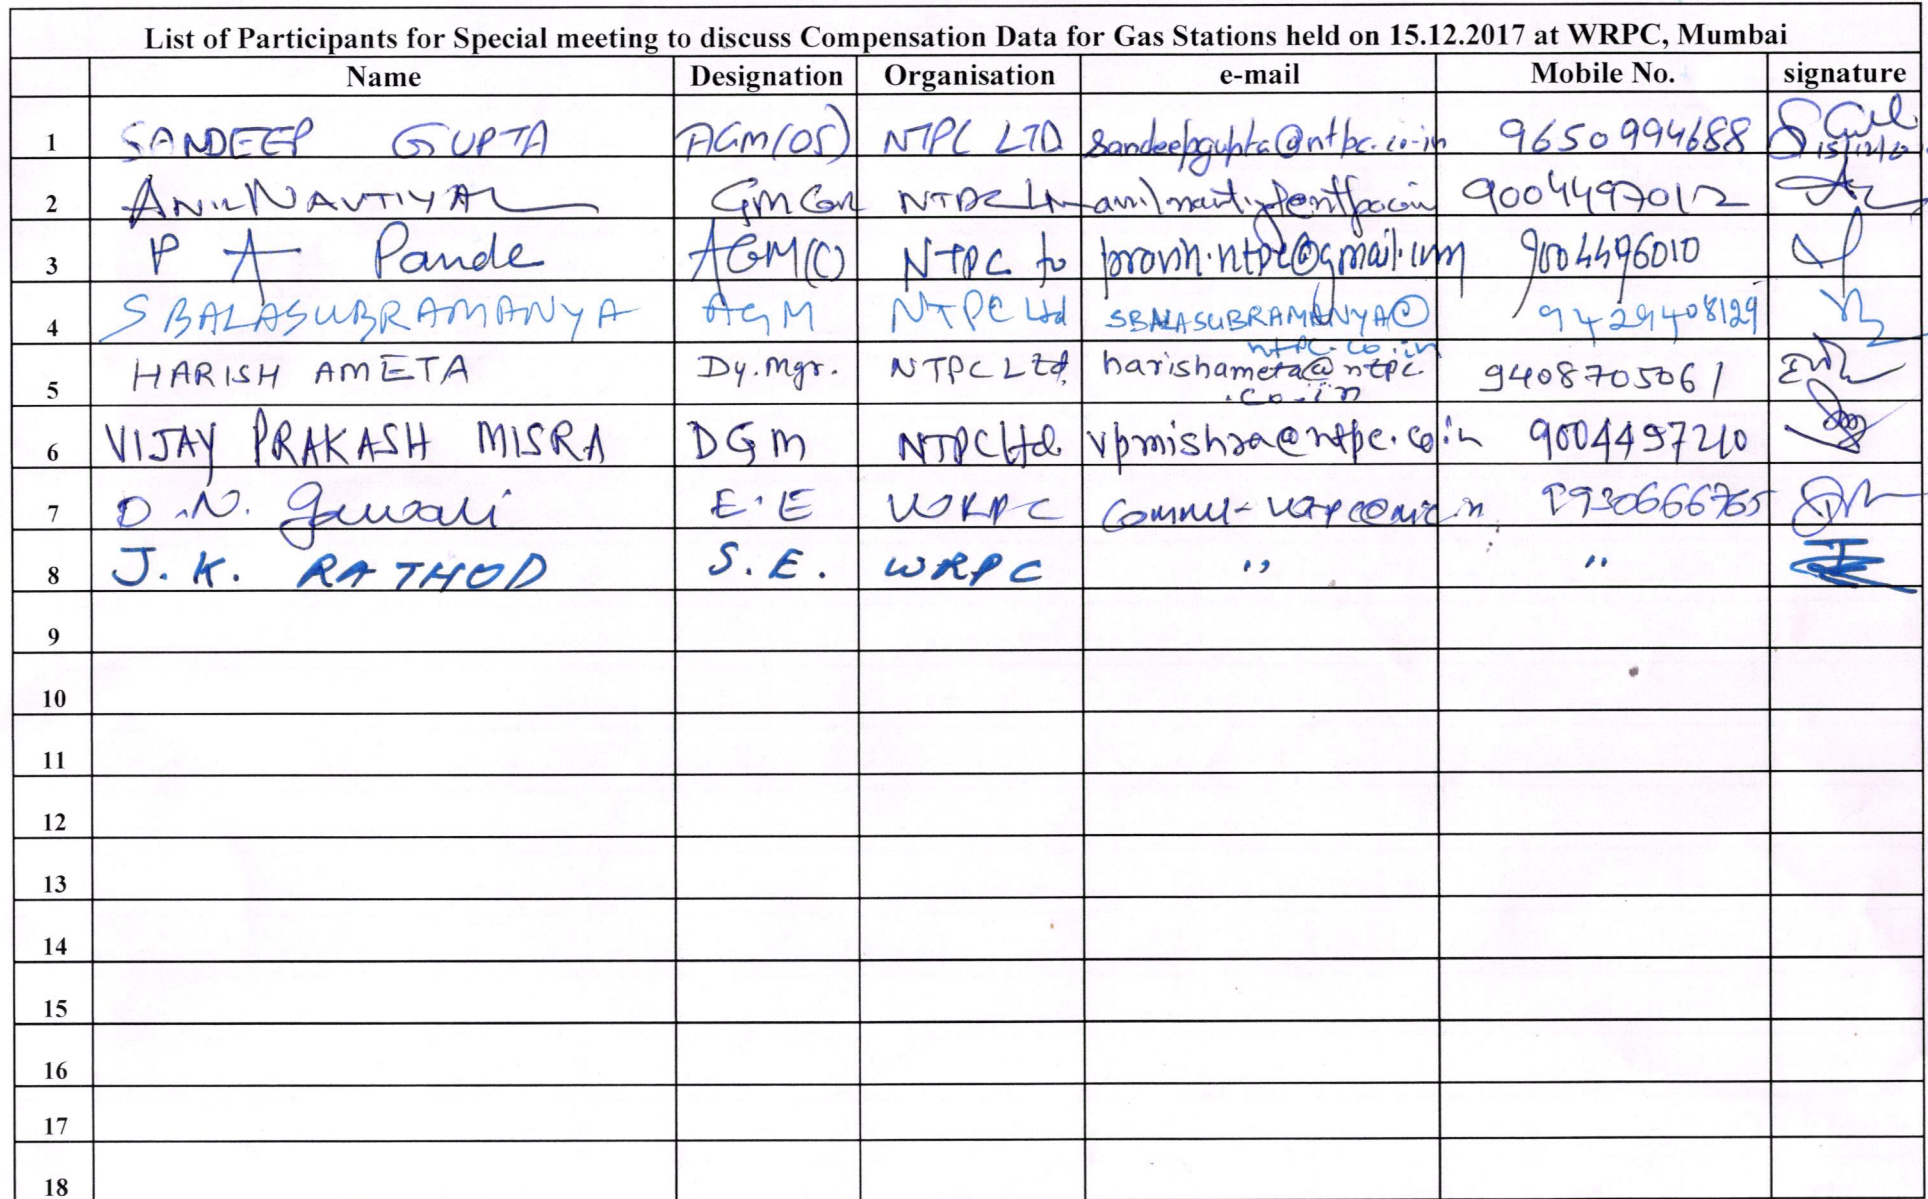 List of Participants for Special meeting to discuss Compensation Data for Gas Stations held on 15.12.2017 at WRPC, Mumbai
Name Designation Organisation e-mail Mobile No. signature
1 SANDEEP GUPTA AGM(OS) NTPC LTD sandeepgupta@ntpc.co.in 9650994688
2 ANIL NAUTIYAL GM Com NTPC Ltd anilnautiyal@ntpc.co.in 9004497012
3 P A Pande AGM(C) NTPC 9004496010
4 S BALASUBRAMANYA AGM NTPC Ltd SBALASUBRAMANYA@ 9429408129
ntpc.co.in
5 HARISH AMETA Dy.Mgr. NTPC Ltd. harishameta@ntpc. 9408705061
.co.in
6 VIJAY PRAKASH MISRA DGM NTPC Ltd. vpmishra@ntpc.co.in 9004497210
7 D.N. Gawali E.E WRPC 9930666765
8 J. K. RATHOD S.E. WRPC " "
9
10
11
12
13
14
15
16
17
18